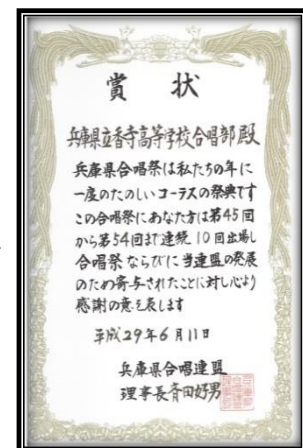 賞状
兵庫県立香寺高等学校合唱部殿
兵庫県合唱祭は私たちの年に
一度のたのしいコーラスの祭典です
この合唱祭にあなた方は第45回
から第54回まで連続10回出場し
合唱祭ならびに当連盟の発展
のため寄与されたことに対し心より
感謝の意を表します
平成29年6月11日
兵庫県合唱連盟
理事長斉田好男